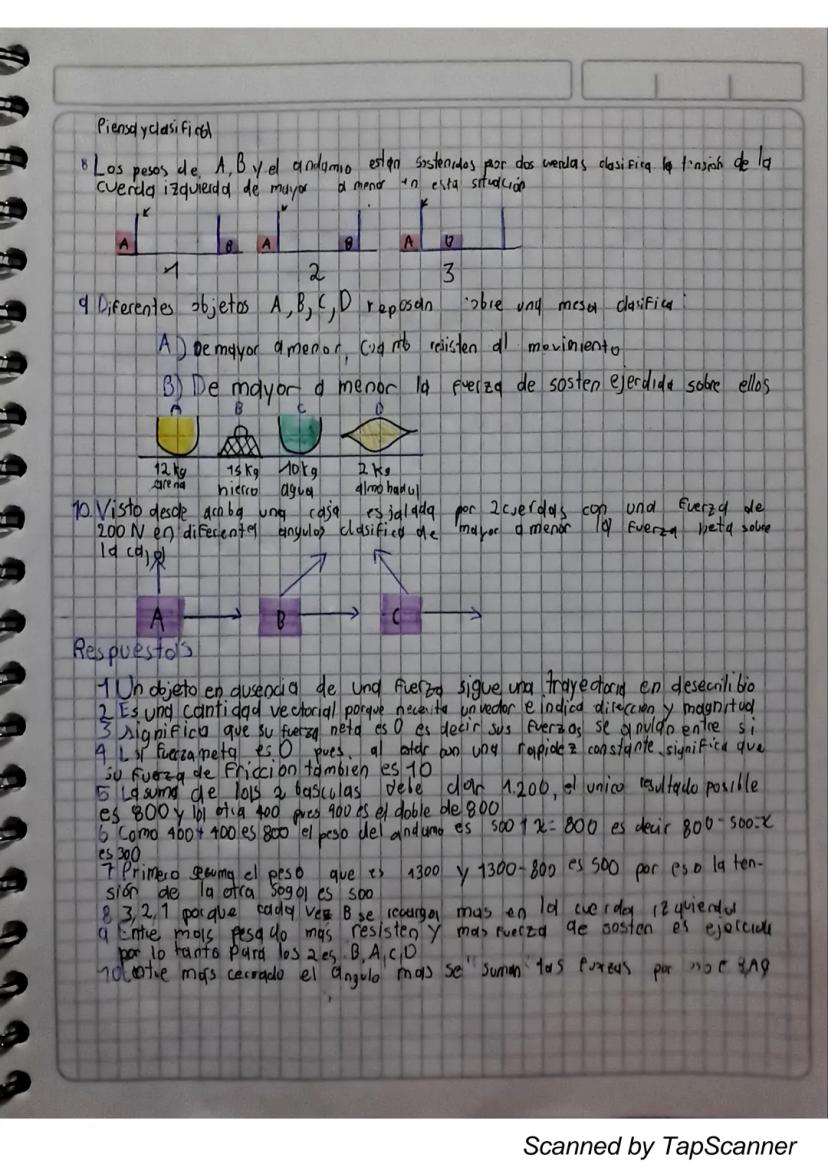 Piensa y clasifica
8 Los pesos de A, B y el andamio estan sostenidos por dos cuerdas clasifica la tensión de la
cuerda izquierda de mayor a menor en esta situación
A B A B A B
1 2 3
9 Diferentes objetos A, B, C, D reposan sobre una mesa clasifica:
A) De mayor a menor, cuanto resisten al movimiento
B) De mayor a menor la fuerza de sosten ejerdida sobre ellos
A B C D
12 kg 15 kg 10 kg 2 kg
arena hierro agua almohada
10. Visto desde arriba una caja es jalada por 2 cuerdas con una fuerza de
200 N en diferentes angulos clasifica de mayor a menor la fuerza neta sobre
la caja
A B C
Respuestas
1 Un objeto en ausencia de una fuerza sigue una trayectoria en desecrilibio
2 Es una cantidad vectorial porque necesita un vector e indica dirección y magnitud
3 significa que su fuerza neta es 0 es decir sus fuerzas se anulan entre si
4 La fuerza neta es 0 pues, al estar con una rapidez constante, significa que
su fuerza de friccion tambien es 10
5 La suma de las 2 basculas debe dar 1.200, el unico resultado posible
es 800 y la otra 400 pues 400 es el doble de 800
6 Como 400 + 400 es 800 el peso del andamo es 500 + x = 800 es decir 800 - 500 = x
es 300
7 Primero suma el peso que es 1300 y 1300 - 800 es 500 por eso la ten-
sión de la otra soga es 500
8 3, 2, 1 porque cada vez B se recarga mas en la cuerda izquierda
9 Entre mas pesado mas resisten y mas fuerza de sosten es ejercida
por lo tanto para los 2 es B, A, C, D
10 entre mas cerrado el angulo mas se "suman" las fuerzas por